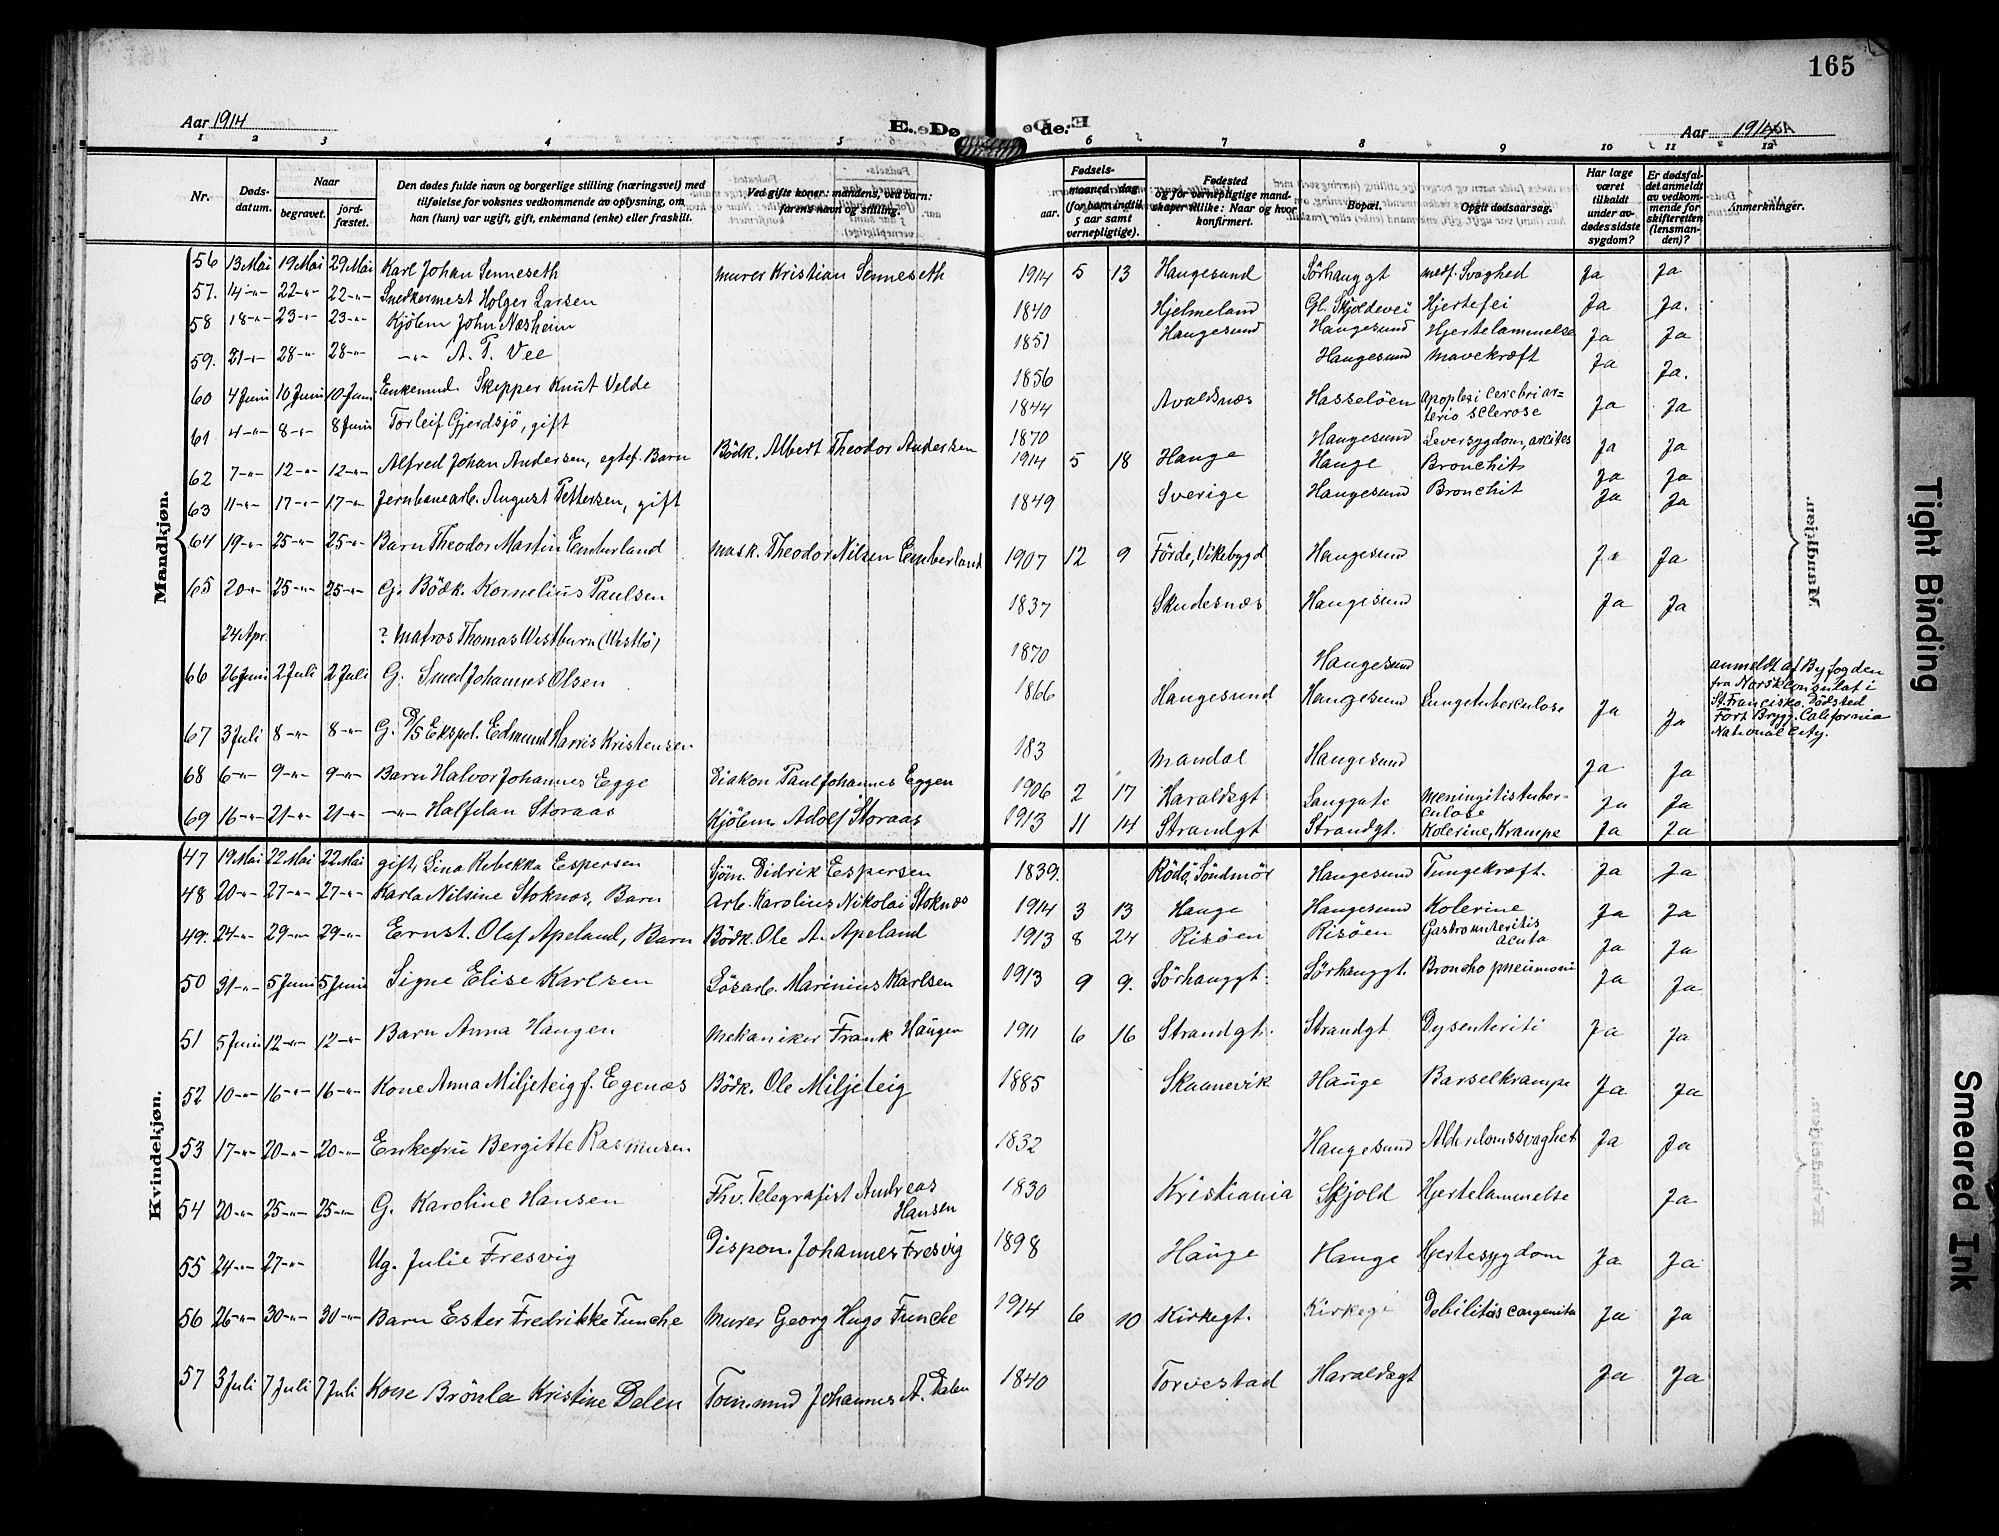 165
Aar 1914
E. Døde:
Aar 1914
1 2 3 4 5 6 7 8 9 10 11 12
Nr. Døds-datum. Naar begravet. jord-fæstet. Den dødes fulde navn og borgerlige stilling (næringsvei) med tilføielse for voksnes vedkommende av oplysning, om han (hun) var ugift, gift, enkemand (enke) eller fraskilt. Ved gifte koner: mandens, ved barn: farens navn og stilling. Fødsels- aar. maaned dag (for barn indtil 5 aar samt vernepligtige). Fødested og for vernepligtige mandskaper tillike: Naar og hvor konfirmert. Bopæl. Opgit dødsaarsag. Har læge været tilkaldt under avdødes sidste sygdom? Er dødsfaldet anmeldt av vedkommende for skifteretten (lensmanden)? Anmerkninger.
Mandkjøn.
56 13 Mai 19 Mai 29 Mai Karl Johan Senneseth Murer Kristian Senneseth 1914 5 13 Haugesund Sörhauggt medf. Svaghed Ja Ja
57. 14 -"- 22 -"- 22 -"- Snedkermest Holger Larsen 1840 Hjelmeland Gl. Skjoldevei Hjertefei Ja Ja.
58 18 -"- 23 -"- 23 -"- Kjölem John Næsheim 1851 Haugesund Haugesund Hjertelammelse Ja Ja
59. 21 -"- 28 -"- 28 -"- -"- A. T. Vee 1856 Haugesund Mavekræft Ja Ja.
60 4 Juni 10 Juni 10 Juni Enkemd. Skipper Knut Velde 1844 Avaldsnæs Hasselöen Apoplexi cerebri arterio sclerose Ja Ja
61 4 -"- 8 -"- 8 Juni Torleif Gjerdsjö, gift 1870 Haugesund Leversygdom, ascites Ja Ja
62 7 -"- 12 -"- 12 -"- Alfred Johan Andersen, egtef. Barn Bödk. Albert Theodor Andersen 1914 5 18 Hauge Hauge Bronchit Ja Ja
63 11 -"- 17 -"- 17 -"- Jernbanearb. August Pettersen, gift 1849 Sverige Haugesund Bronchit Ja Ja
64 19 -"- 25 -"- 25 -"- Barn Theodor Martin Emberland Mask. Theodor Nilsen Emberland 1907 12 9 Förde, Vikebygd Haugesund Ja Ja
65 20 -"- 25 -"- 25 -"- G. Bödk. Kornelius Paulsen 1837 Skudesnæs Haugesund Ja Ja
24 Apr. ? Matros Thomas Westburn (Westbö) 1870 Haugesund anmeldt af Byfogden fra Norsk Consulat i St. Francisko. Dödsted Fort Brygg. California National City.
66 26 Juni 2 Juli 2 Juli G. Smed Johannes Olsen 1866 Haugesund Haugesund Lungetuberculose Ja Ja
67 3 Juli 8 -"- 8 -"- G. D/S Ekspd. Edmund Harris Kristensen 183 Mandal Haugesund Ja Ja
68 6 -"- 9 -"- 9 -"- Barn Halvor Johannes Egge Diakon Paul Johannes Eggen 1906 2 17 Haraldsgt Langgate Meningitis tuberculose Ja Ja
69 16 -"- 21 -"- 21 -"- -"- Halfdan Storaas Kjölem. Adolf Storaas 1913 11 14 Strandgt Strandgt. Kolerine, Krampe Ja Ja
Kvindekjøn.
47 19 Mai 22 Mai 22 Mai gift, Lina Rebekka Espersen Sjöm. Didrik Espersen 1839. Rödö, Söndmör Haugesund Tungekræft. Ja Ja
48 20 -"- 27 -"- 27 -"- Karla Nilsine Stoknæs, Barn Arb. Karolius Nikolai Stoknæs 1914 3 13 Hauge Haugesund Kolerine Ja Ja
49. 24 -"- 29 -"- 29 -"- Ernst. Olaf Apeland, Barn Bödk. Ole A. Apeland 1913 8 24 Risöen Risöen Gastroenteritis acuta Ja Ja
50 31 -"- 5 Juni 5 Juni Signe Elise Karlsen Lösarb. Marinius Karlsen 1913 9 9. Sörhauggt. Sörhauggt. Bronchopneumoni Ja Ja
51 5 Juni 12 -"- 12 -"- Barn Anna Haugen Mekaniker Frank Haugen 1911 6 16 Strandgt. Strandgt Dysenteriti Ja Ja
52 10 -"- 16 -"- 16 -"- Kone Anna Miljeteig f. Egenæs Bödk. Ole Miljeteig 1885 Skaanevik Hauge Barselkrampe Ja Ja
53 17 -"- 20 -"- 20 -"- Enkefru Bergitte Rasmusen 1832 Haugesund Alderdomssvaghet Ja Ja
54 20 -"- 25 -"- 25 -"- G. Karoline Hansen Fhv. Telegrafist Andreas Hansen 1830 Kristiania Skjold Hjertelammelse Ja
55 24 -"- 27 -"- Ug. Julie Fresvig Dispon. Johannes Fresvig 1898 Hauge Hauge Hjertesygdom Ja Ja
56 26 -"- 30 -"- 30 -"- Barn Ester Fredrikke Funche Murer Georg Hugo Funche 1914 6 10 Kirkegt. Kirkegt Debilitas congenita Ja Ja
57 3 Juli 7 Juli 7 Juli Kone Brönla Kristine Dalen Tom.mnd Johannes A. Dalen 1840 Torvestad Haraldsgt Ja Ja
Mandkjøn.
Kvindekjøn.
Tight Binding
Smeared Ink